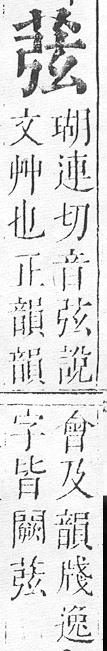 瑚連切音弦說
文艸也正韻韻
會及韻牋逸
字皆闕